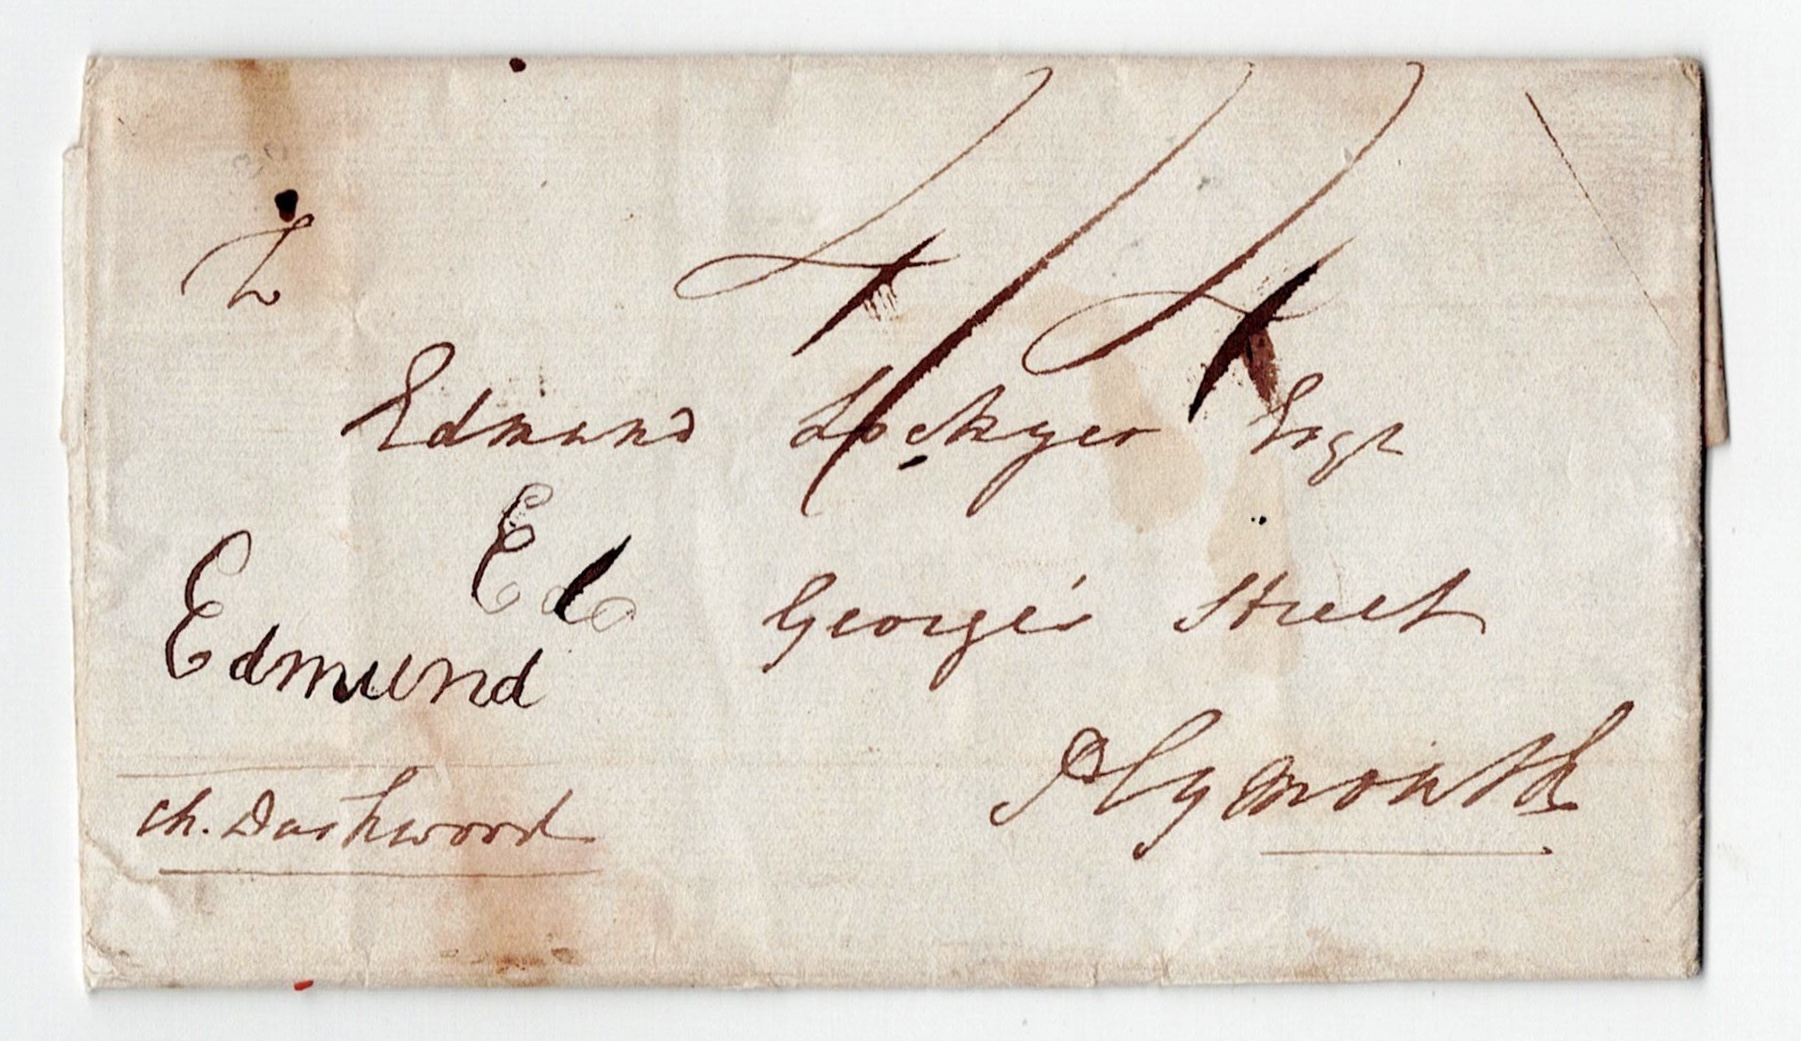 4/4
Edmund Lockyer Esqr
Ed
George's Street
Edmund
Plymouth
Ch. Dashwood